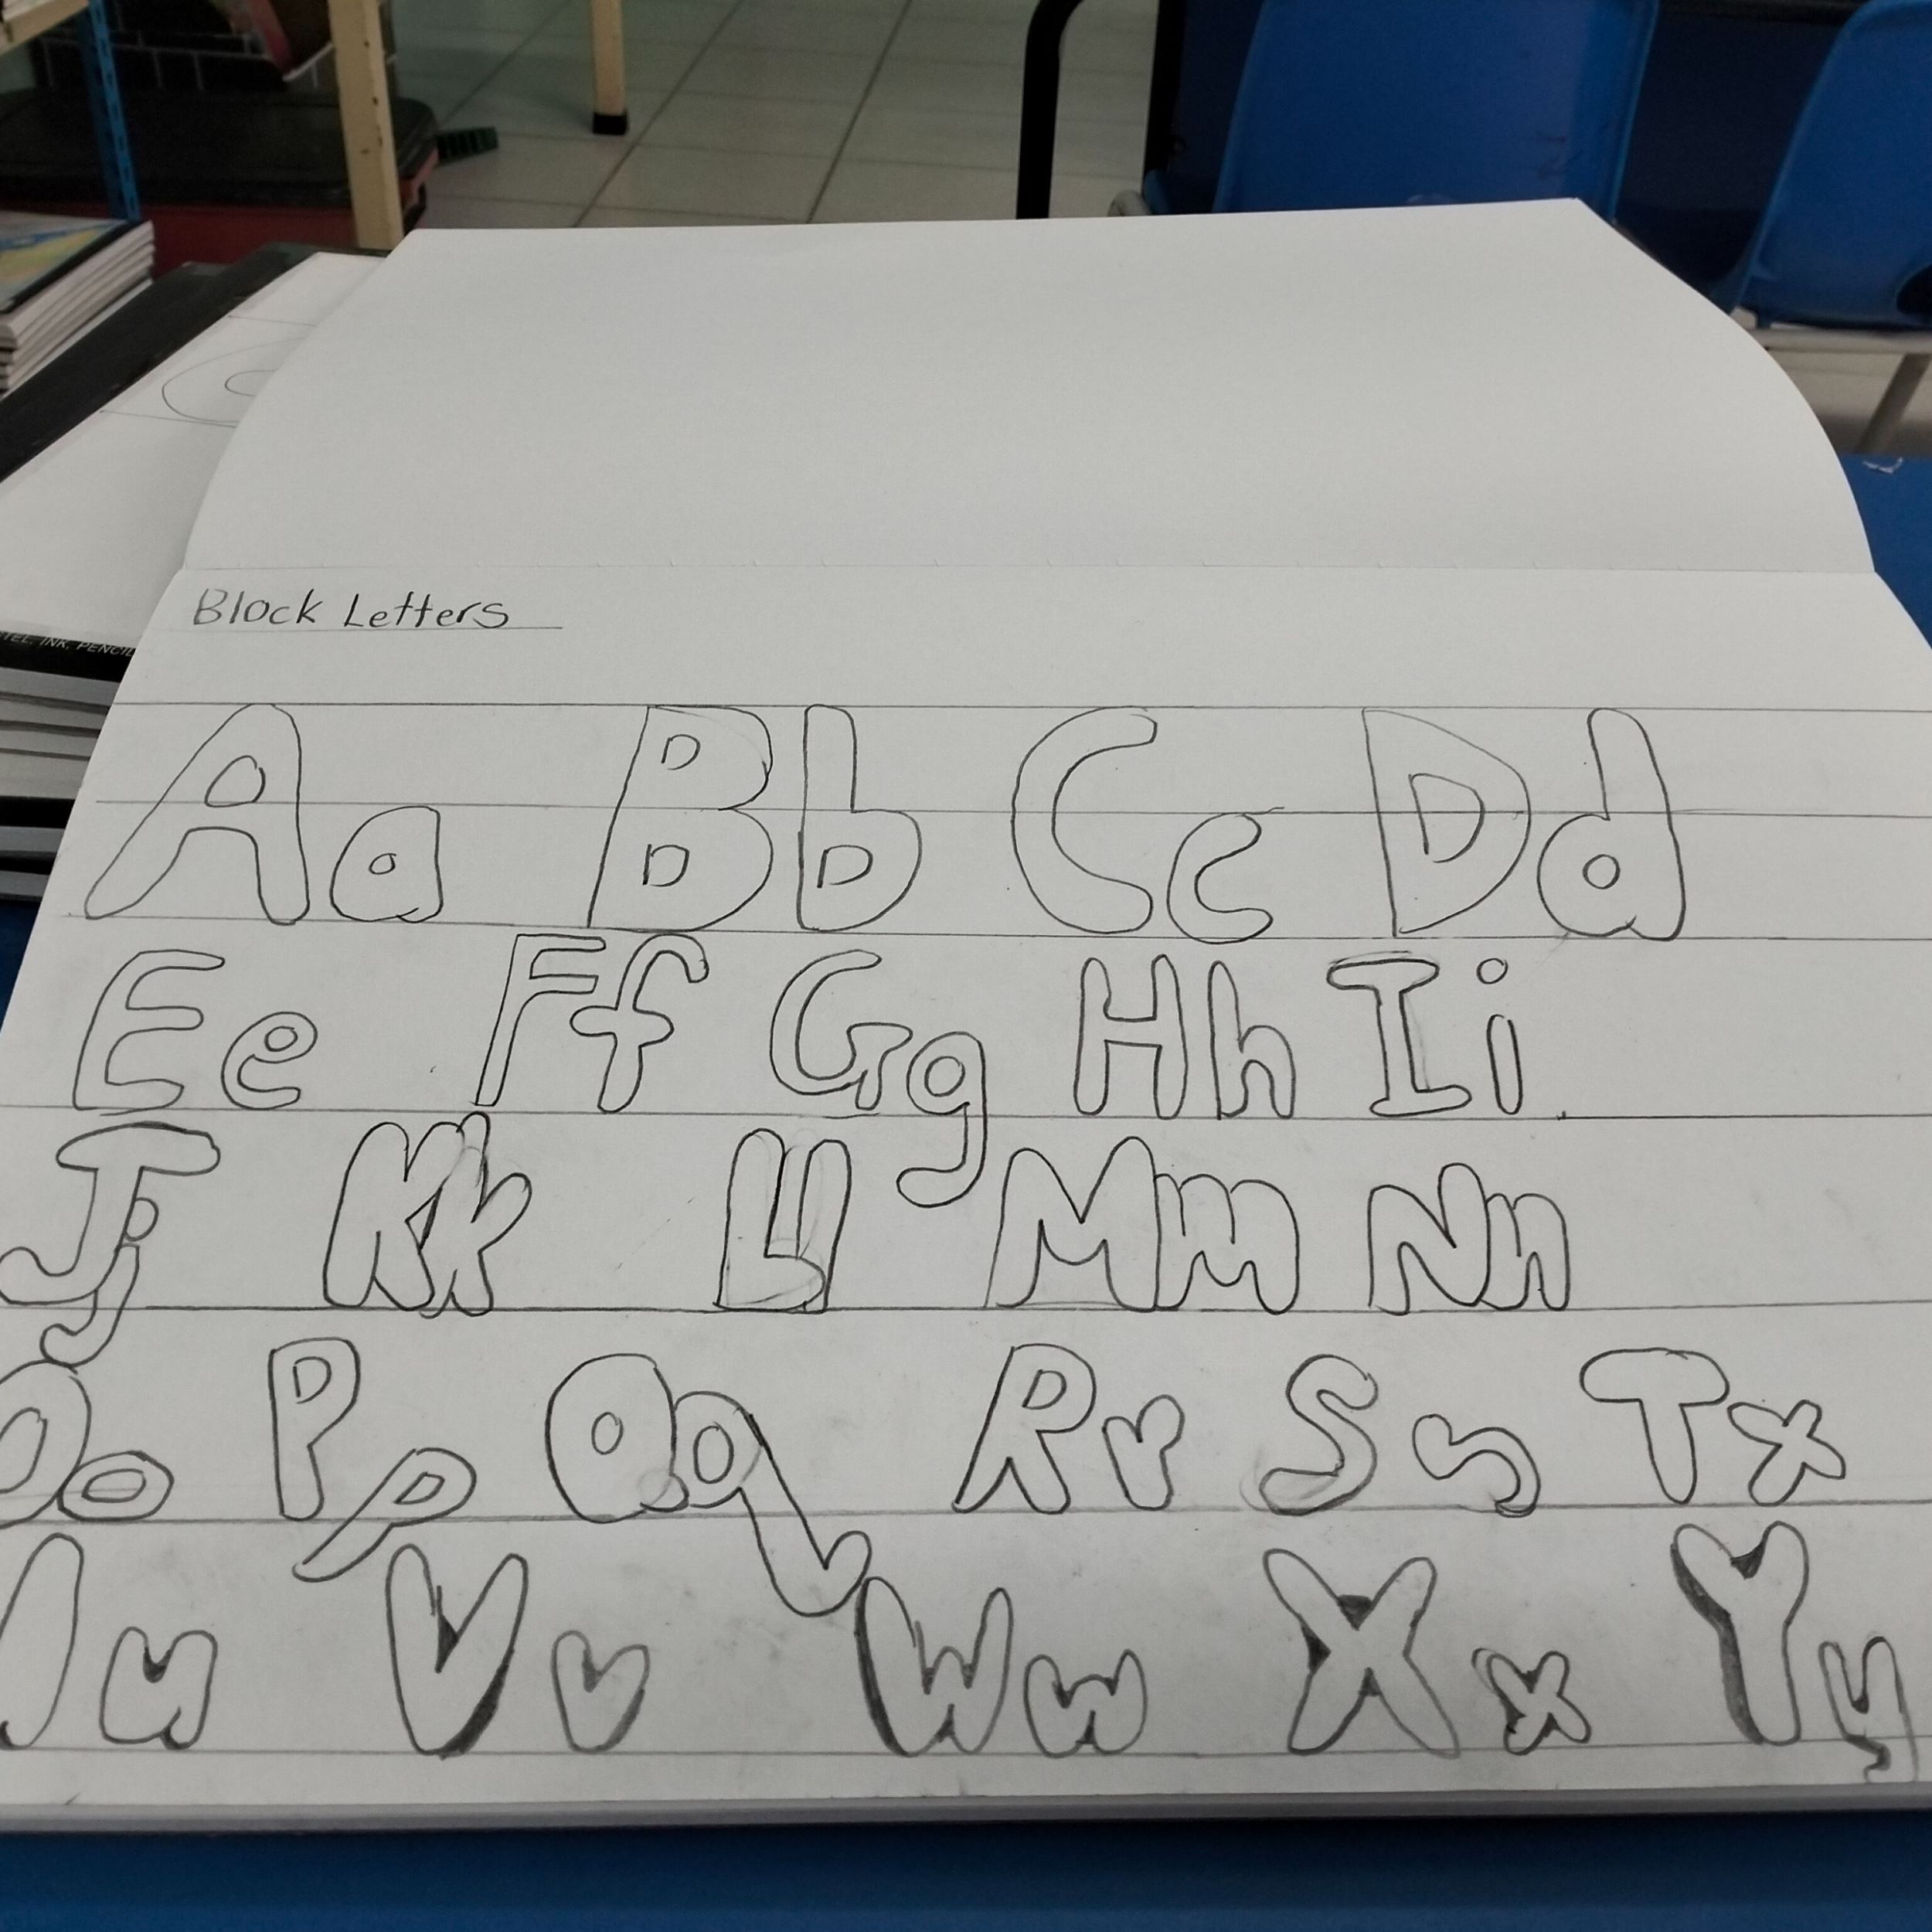 Block Letters
Aa Bb Cc Dd
Ee Ff Gg Hh Ii
Jj Kk Ll Mm Nn
Oo Pp Qq Rr Ss Tx
u Vv Ww Xx Yy
TEL, INK, PENCIL